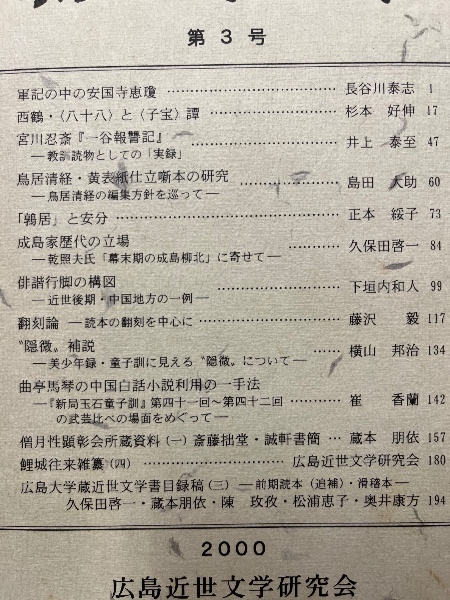 第3号
軍記の中の安国寺恵瓊 ……………………… 長谷川泰志 1
西鶴・〈八十八〉と〈子宝〉譚 ……………… 杉本 好伸 17
宮川忍斎『一谷報讐記』
―教訓読物としての「実録」 ………… 井上 泰至 47
鳥居清経・黄表紙仕立噺本の研究
―鳥居清経の編集方針を巡って― ………… 島田 大助 60
「鶉居」と安分 ……………………………… 正本 綏子 73
成島家歴代の立場
―乾照夫氏「幕末期の成島柳北」に寄せて― ………… 久保田啓一 84
俳諧行脚の構図
―近世後期・中国地方の一例― ………… 下垣内和人 99
翻刻論 ―読本の翻刻を中心に― ………… 藤沢 毅 117
〝隠微〟補説
―美少年録・童子訓に見える〝隠微〟について― …… 横山 邦治 134
曲亭馬琴の中国白話小説利用の一手法
―『新局玉石童子訓』第四十一回~第四十二回
の武芸比べの場面をめぐって― …… 崔 香蘭 142
僧月性顕彰会所蔵資料(一) 斎藤拙堂・誠軒書簡 … 蔵本 朋依 157
鯉城往来雑纂(四) ………………… 広島近世文学研究会 180
広島大学蔵近世文学書目録稿(三) ―前期読本(追補)・滑稽本―
久保田啓一・蔵本朋依・陳 玫孜・松浦恵子・奥井康方 194
2000
広島近世文学研究会